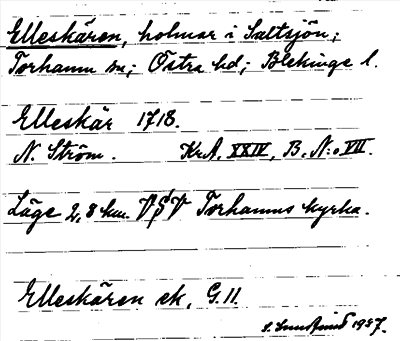 Elleskären, holmar i Saltsjön;
Torhamn sn; Östra hd; Blekinge l.
Elleskär 1718.
N. Ström. KrA, XXIV, B. N:o VII.
Läge 2,8 km VSV Torhamns kyrka.
Elleskären ek. G.11.
1927.